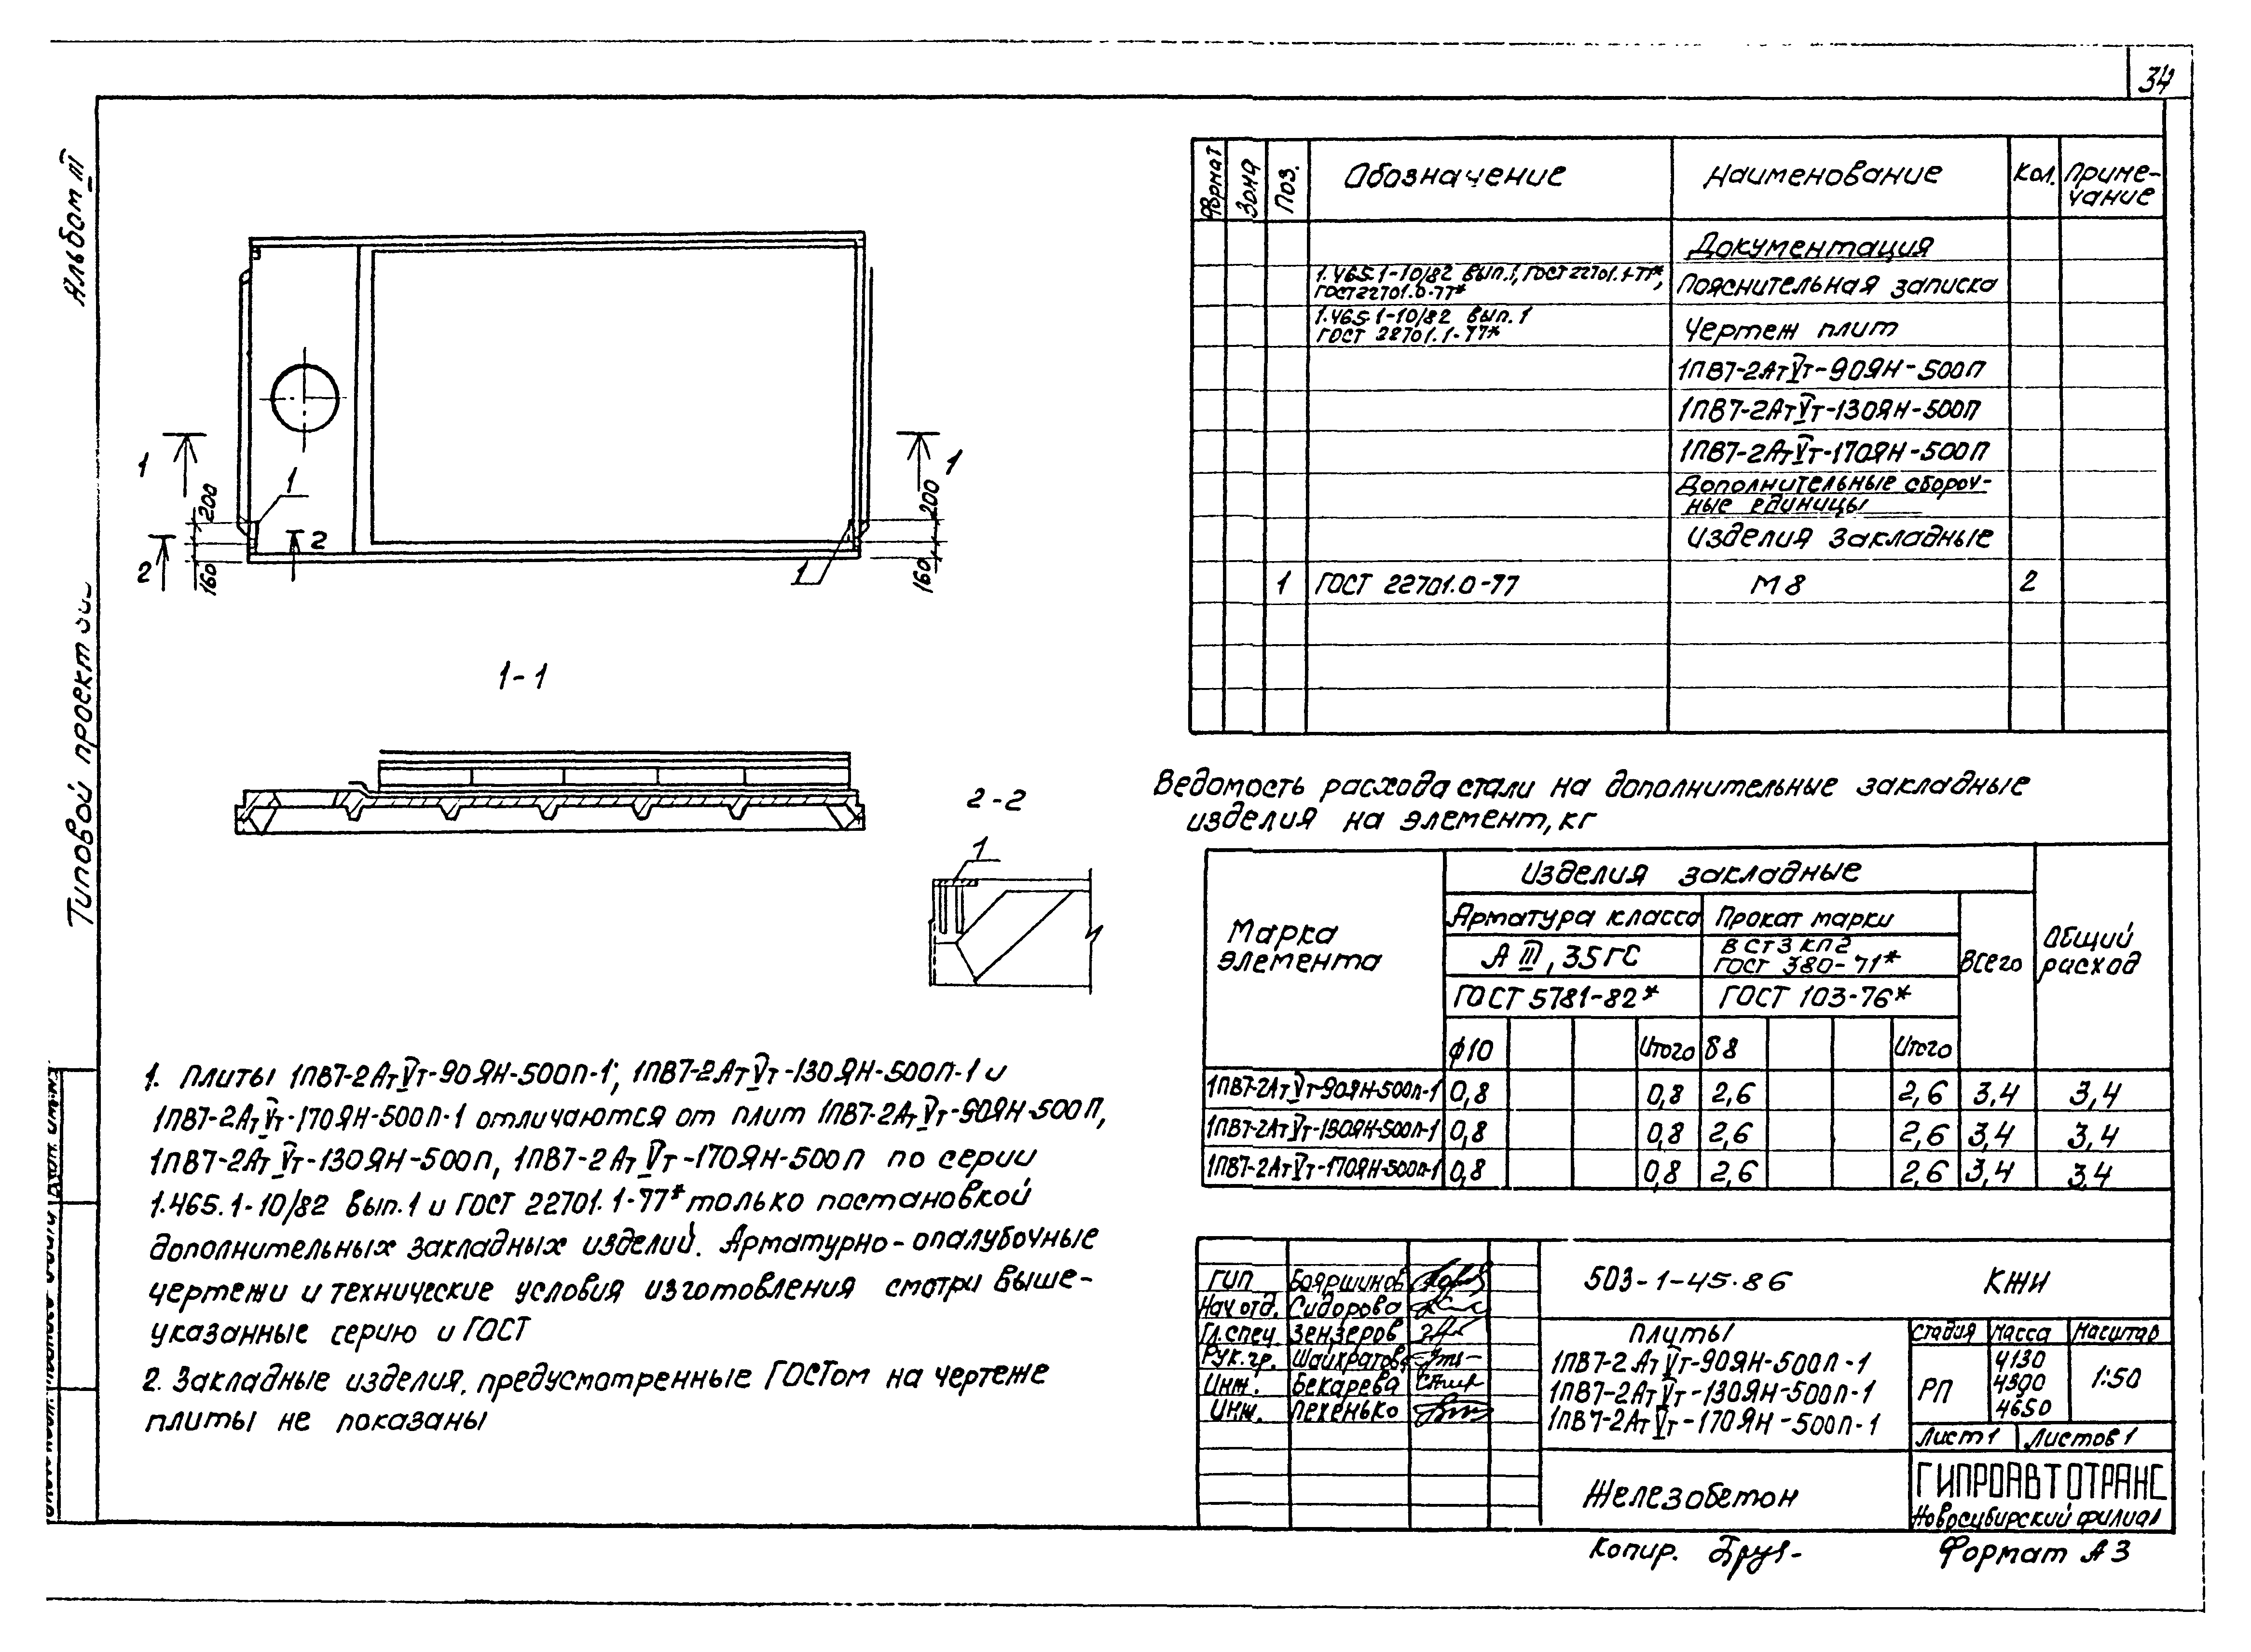 34
Альбом III
Типовой проект
1
1
200
160
2
1
2
1
200
160
1
1-1
2-2
1
1. Плиты 1ПВ7-2АтVт-90ЯН-500П-1; 1ПВ7-2АтVт-130ЯН-500П-1 и
1ПВ7-2АтVт-170ЯН-500П-1 отличаются от плит 1ПВ7-2АтVт-90ЯН-500П,
1ПВ7-2АтVт-130ЯН-500П, 1ПВ7-2АтVт-170ЯН-500П по серии
1.465.1-10/82 вып.1 и ГОСТ 22701.1-77* только постановкой
дополнительных закладных изделий. Арматурно-опалубочные
чертежи и технические условия изготовления смотри выше-
указанные серию и ГОСТ
2. Закладные изделия, предусмотренные ГОСТом на чертеже
плиты не показаны
Формат Зона Поз. Обозначение Наименование Кол. Приме-
чание
Документация
1.465.1-10/82 вып.1, ГОСТ 22701.1-77*,
ГОСТ 22701.0-77* Пояснительная записка
1.465.1-10/82 вып.1
ГОСТ 22701.1-77* Чертеж плит
1ПВ7-2АтVт-90ЯН-500П
1ПВ7-2АтVт-130ЯН-500П
1ПВ7-2АтVт-170ЯН-500П
Дополнительные сбороч-
ные единицы
Изделия закладные
1 ГОСТ 22701.0-77 М8 2
Ведомость расхода стали на дополнительные закладные
изделия на элемент, кг
Марка
элемента
Изделия закладные
Общий
расход
Арматура класса Прокат марки
Всего
А III, 35ГС
ВСт3кп2
ГОСТ 380-71*
ГОСТ 5781-82* ГОСТ 103-76*
ϕ10 Итого δ8 Итого
1ПВ7-2АтVт-90ЯН-500П-1 0,8 0,8 2,6 2,6 3,4 3,4
1ПВ7-2АтVт-130ЯН-500П-1 0,8 0,8 2,6 2,6 3,4 3,4
1ПВ7-2АтVт-170ЯН-500П-1 0,8 0,8 2,6 2,6 3,4 3,4
ГИП Бояршинов
Нач.отд. Сидорова
Гл.спец. Зензеров
Рук.гр. Шайхратов
Инж. Бекарева
Инж. Пехенько
503-1-45.86 КЖИ
Плиты
1ПВ7-2АтVт-90ЯН-500П-1
1ПВ7-2АтVт-130ЯН-500П-1
1ПВ7-2АтVт-170ЯН-500П-1
Стадия Масса Масштаб
РП
4130
4300
4650
1:50
Лист 1 Листов 1
Железобетон
ГИПРОАВТОТРАНС
Новосибирский филиал
Копир.
Формат А3